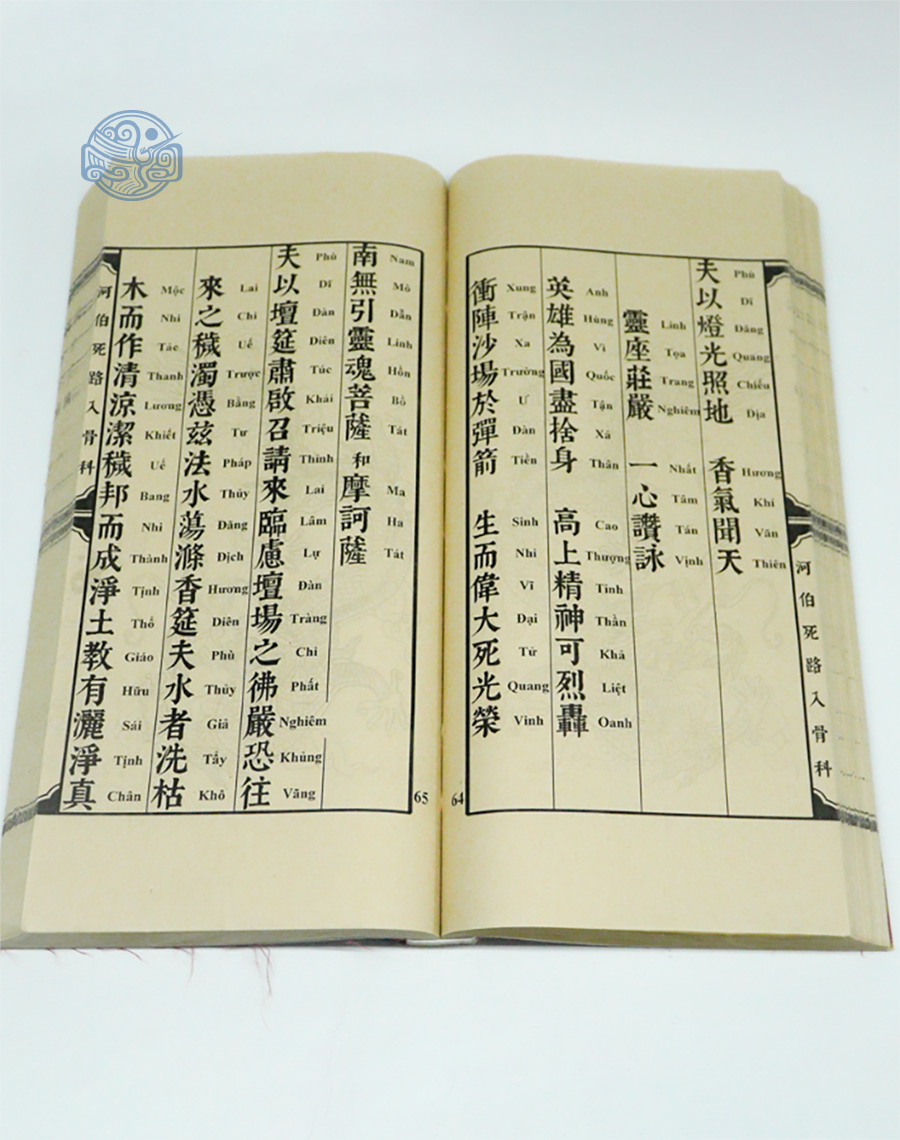 夫以燈光照地 香氣聞天
Phù Dĩ Đăng Quang Chiếu Địa Hương Khí Văn Thiên
靈座莊嚴 一心讚詠
Linh Tọa Trang Nghiêm Nhất Tâm Tán Vịnh
英雄為國盡捨身 高上精神可烈轟
Anh Hùng Vì Quốc Tận Xả Thân Cao Thượng Tinh Thần Khả Liệt Oanh
衝陣沙場於彈箭 生而偉大死光榮
Xung Trận Xa Trường Ư Đàn Tiền Sinh Nhi Vĩ Đại Tử Quang Vinh
河伯死路入骨科
64
南無引靈魂菩薩和摩訶薩
Nam Mô Dẫn Linh Hồn Bồ Tát Ma Ha Tát
夫以壇筵肅啟召請來臨慮壇場之彿嚴恐往
Phù Dĩ Đàn Diên Túc Khải Triệu Thỉnh Lai Lâm Lự Đàn Tràng Chi Phất Nghiêm Khủng Vãng
來之穢濁憑茲法水蕩滌香筵夫水者洗枯
Lai Chi Uế Trược Bằng Tư Pháp Thủy Đãng Địch Hương Diên Phù Thủy Giả Tẩy Khô
木而作清涼潔穢邦而成淨土教有灑淨真
Mộc Nhi Tác Thanh Lương Khiết Uế Bang Nhi Thành Tịnh Thổ Giáo Hữu Sái Tịnh Chân
河伯死路入骨科
65